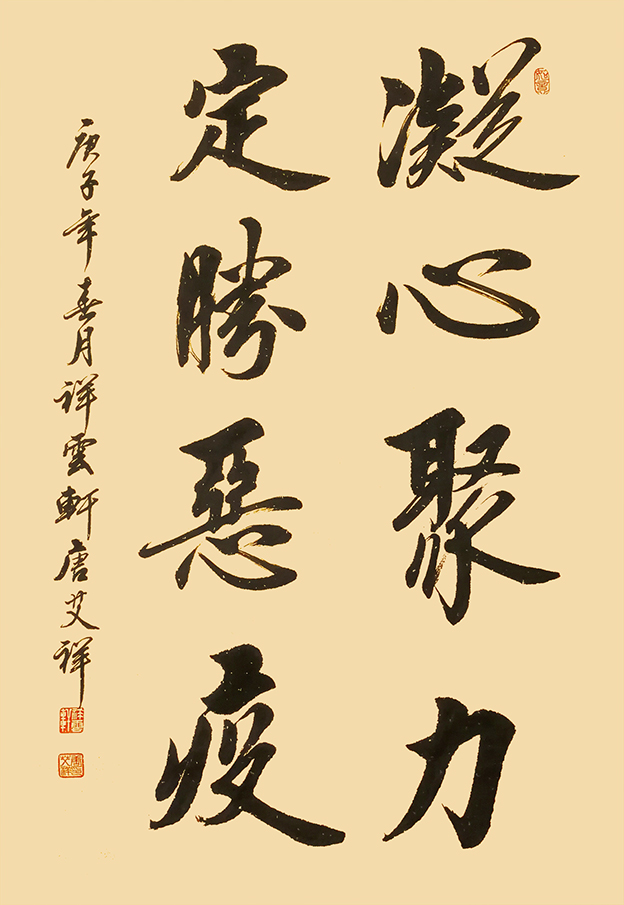 凝心聚力
定勝惡疫
庚子年春月祥雲軒唐艾祥